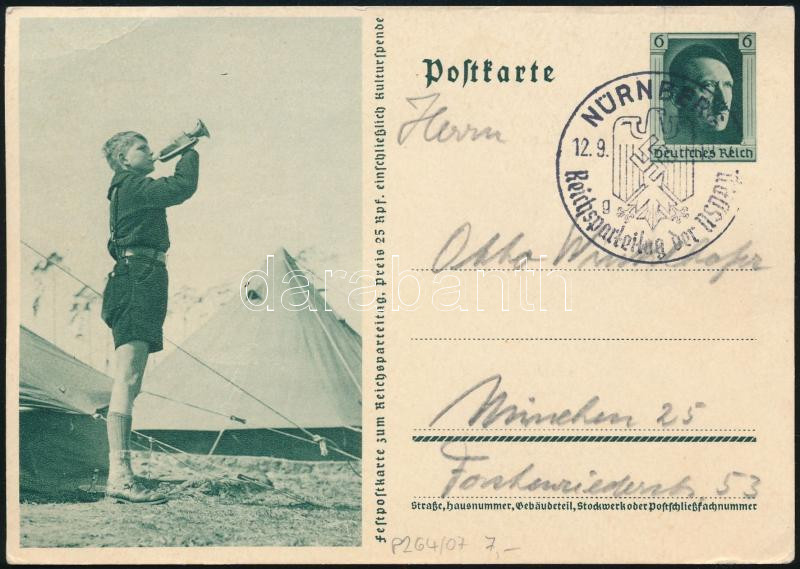 Postkarte
6 6
Deutsches Reich
NÜRNBERG
12.9.
g
Reichsparteitag der NSDAP
Herrn
Otto
München 25
Forstenriederstr, 53
Straße, Hausnummer, Gebäudeteil, Stockwerk oder Postschließfachnummer
Festpostkarte zum Reichsparteitag. Preis 25 Rpf. einschließlich Kulturspende
P264/07 7,-
darabanth